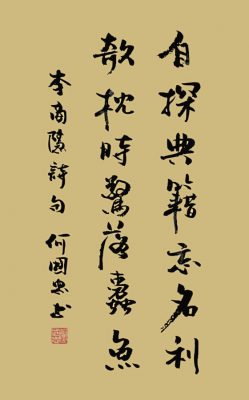 自探典籍忘名利
欹枕時驚落蠹魚
李商隱詩句 何國忠书